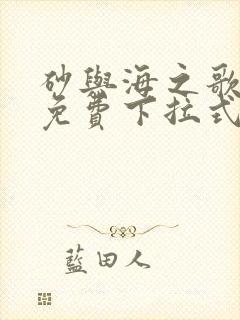 砂與海之歌
免費下拉式
藍田人